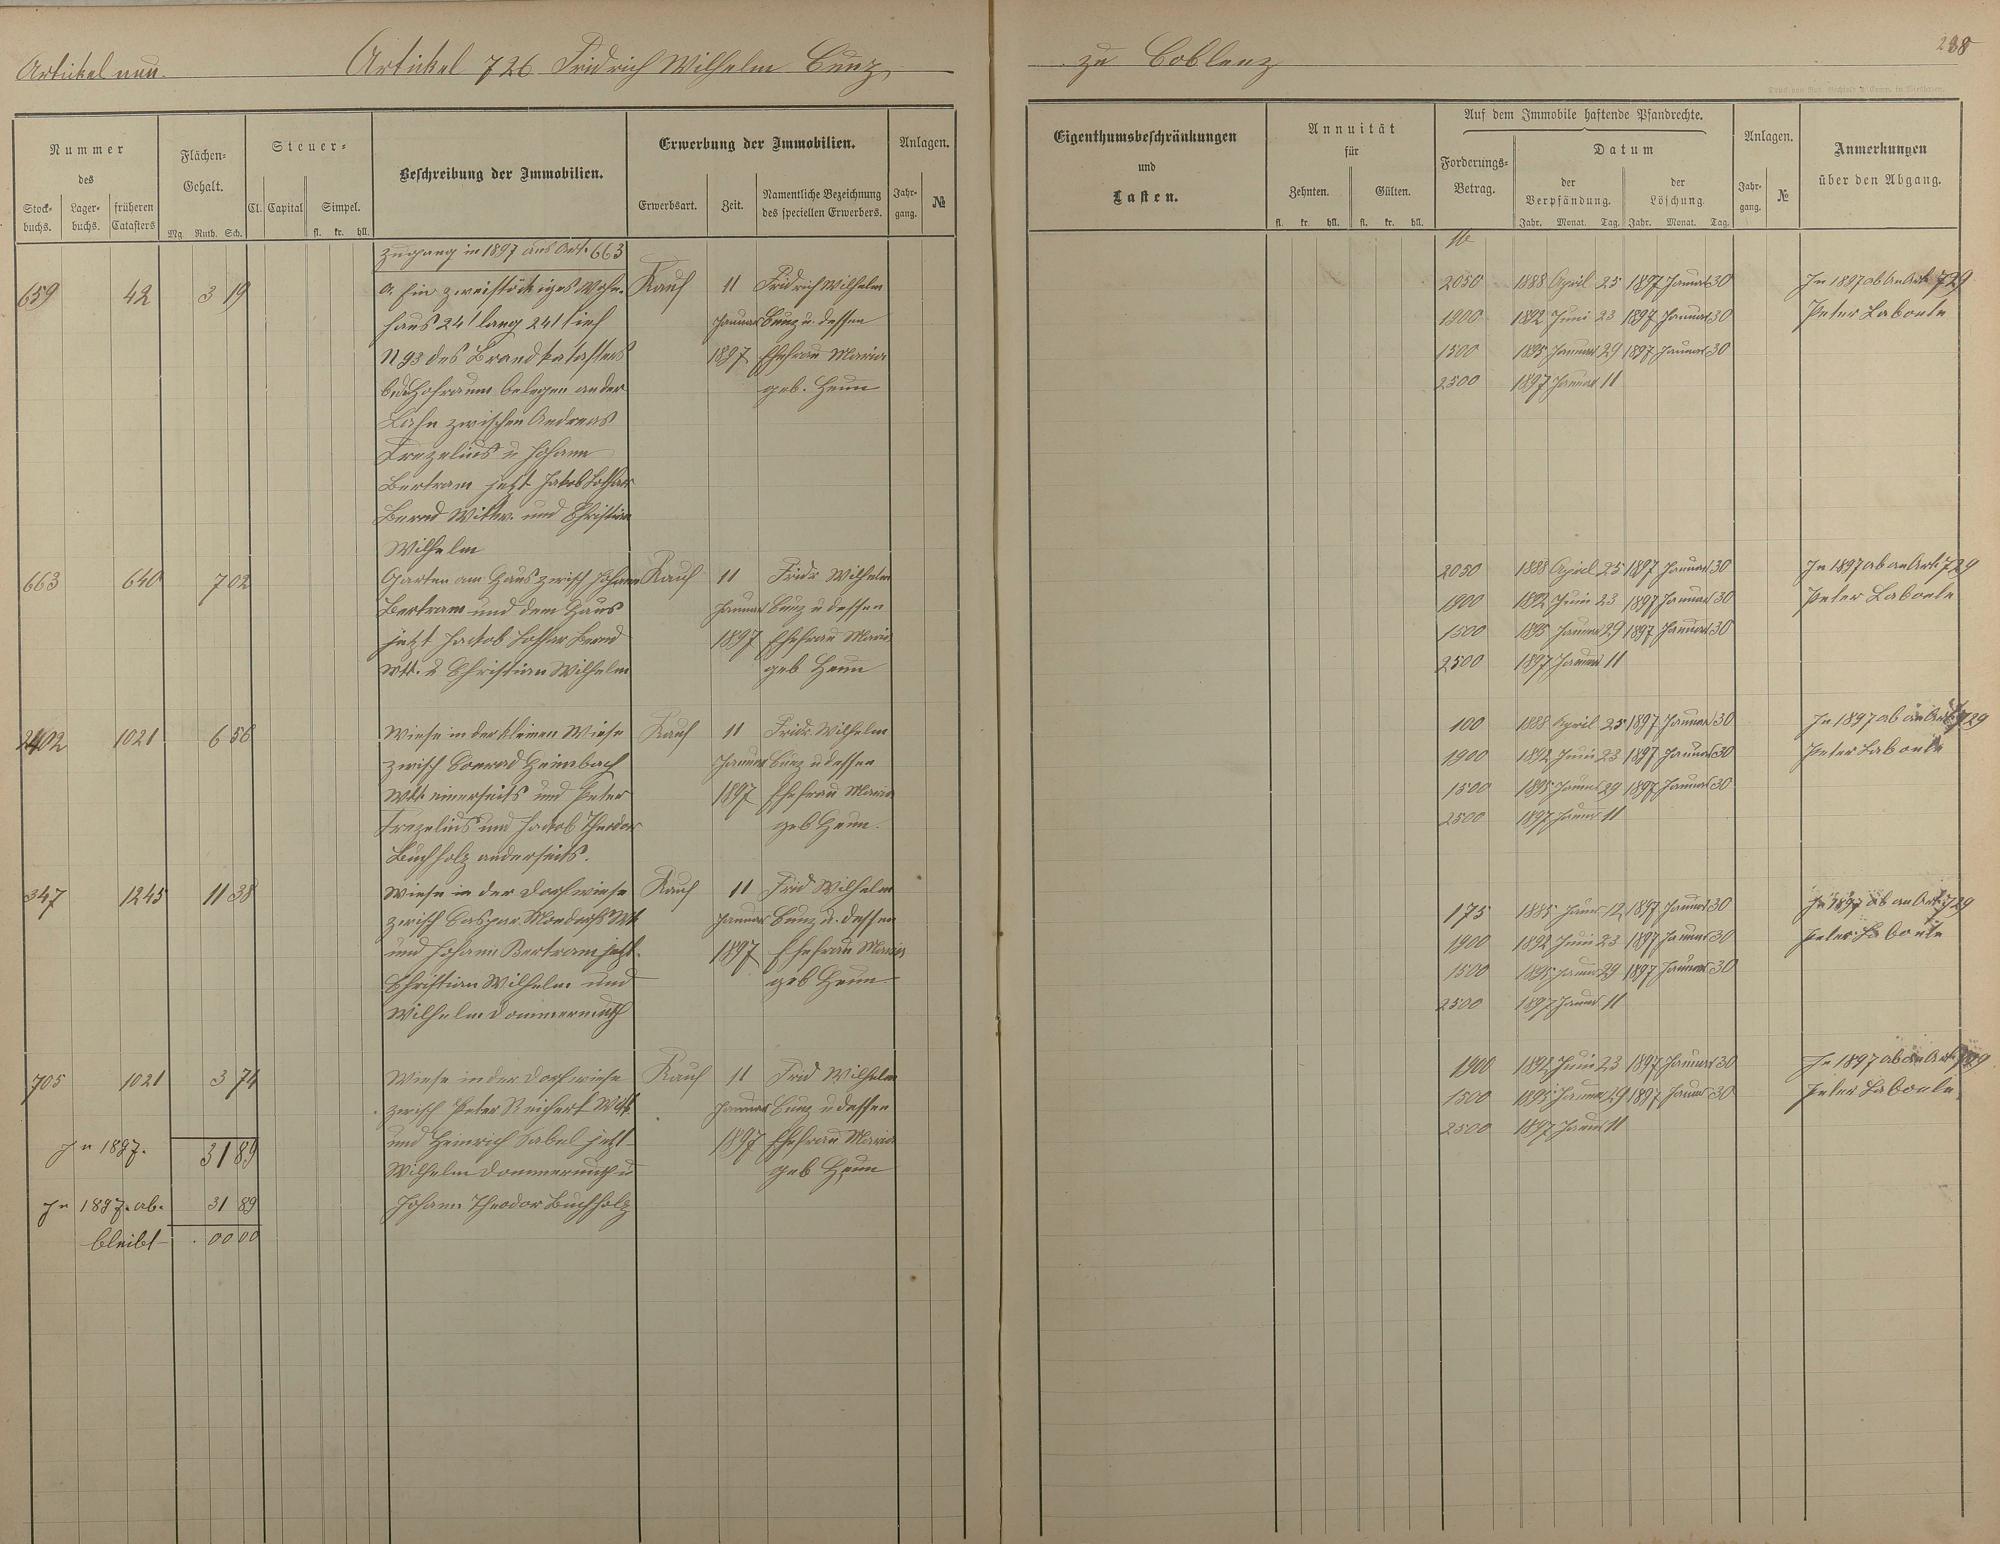 288
Artikel neu.
Artikel 726 Fridrich Wilhelm Cunz
zu Coblenz
Nummer
des
Stock-
buchs.
Lager-
buchs.
früheren
Catasters
Flächen-
Gehalt.
Mg. Ruth. Sch.
Steuer-
Cl. Capital Simpel.
fl. kr. hll.
Beschreibung der Immobilien.
Erwerbung der Immobilien.
Erwerbsart. Zeit. Namentliche Bezeichnung
des speciellen Erwerbers.
Anlagen.
Jahr-
gang. №
Eigenthumsbeschränkungen
und
Lasten.
Annuität
für
Zehnten. Gülten.
fl. kr. hll. fl. kr. hll.
Auf dem Immobile haftende Pfandrechte.
Forderungs-
Betrag.
Datum
der
Verpfändung.
der
Löschung
Jahr. Monat. Tag. Jahr. Monat. Tag.
Anlagen.
Jahr-
gang. №
Anmerkungen
über den Abgang.
Zugang in 1897 aus Art. 663
659 42 3 19
a. Ein zweistöckiges Wohn-
haus 24' lang 24' tief
N 93 des Brandkatasters
Hofraum belegen an der
Lahn zwischen Andreas
Trezelius u Johann
Bertram jetzt Jakob Lothar
Bernd Wittw. und Christian
Wilhelm
Kauf
11
Januar
1897
Fridrich Wilhelm
Cunz u. dessen
Ehefrau Maria
geb. Heun
2050 1888 April 25 1897 Januar 30
1900 1892 Juni 23 1897 Januar 30
1500 1895 Januar 29 1897 Januar 30
2500 1897 Januar 11
In 1897 ab an Art. 729
Peter Labonte
663 640 7 02
Garten am Haus zwisch Johann
Bertram und dem Haus
jetzt Jackob Lothar Bernd
Wtt. u Christian Wilhelm
Kauf
11
Januar
1897
Fridr Wilhelm
Cunz u dessen
Ehefrau Maria
geb Heun
2050 1888 April 25 1897 Januar 30
1900 1892 Juni 23 1897 Januar 30
1500 1895 Januar 29 1897 Januar 30
2500 1897 Januar 11
In 1897 ab an Art. 729
Peter Labonte
2402 1021 6 56
Wiese in der kleinen Wiese
zwisch Conrad Heimbach
Wtt. einerseits und Peter
Trezelius und Jackob Theodor
Buchholz anderseits.
Kauf
11
Januar
1897
Fridr. Wilhelm
Cunz u dessen
Ehefrau Maria
geb Heun.
100 1888 April 25 1897 Januar 30
1900 1892 Juni 23 1897 Januar 30
1500 1895 Januar 29 1897 Januar 30
2500 1897 Januar 11
In 1897 ab an Art. 729
Peter Labonte
347 1245 11 38
Wiese in der Dorfwiese
zwisch Caspar Wtt
und Johann Bertram jetzt
Christian Wilhelm und
Wilhelm Dommermuth
Kauf
11
Januar
1897
Frid Wilhelm
Cunz u. dessen
Ehefrau Maria
geb Heun
175 1885 Januar 12 1897 Januar 30
1900 1892 Juni 23 1897 Januar 30
1500 1895 Januar 29 1897 Januar 30
2500 1897 Januar 11
In 1897 ab an Art. 729
Peter Labonte
705 1021 3 74
Wiese in der Dorfwiese
zwisch Peter Reichert Wtt.
und Heinrich Sabel jetzt
Wilhelm Dommermuth u
Johann Theodor Buchholz
Kauf
11
Januar
1897
Frid Wilhelm
Cunz u dessen
Ehefrau Maria
geb Heun
1900 1892 Juni 23 1897 Januar 30
1500 1895 Januar 29 1897 Januar 30
2500 1897 Januar 11
In 1897 ab an Art. 729
Peter Labonte
In 1897. 31 89
In 1897. ab. 31 89
bleibt 00 00